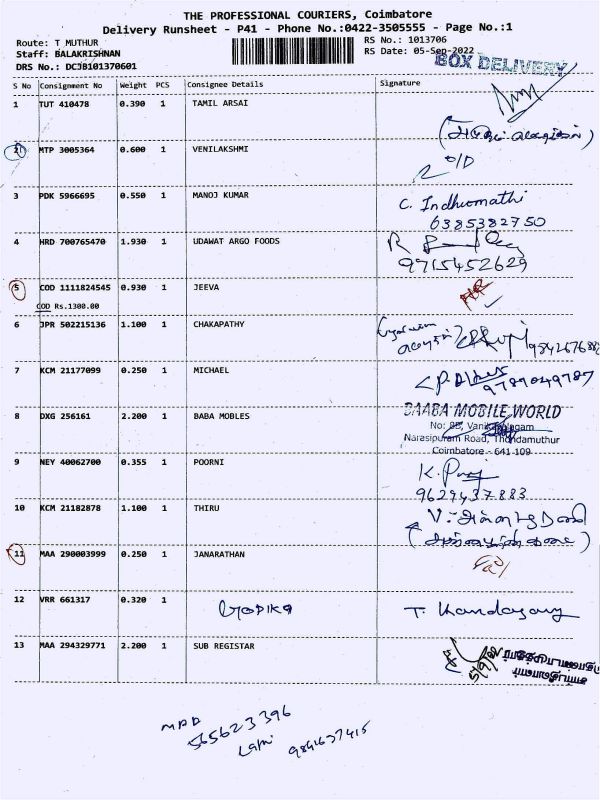 THE PROFESSIONAL COURIERS, Coimbatore
Delivery Runsheet - P41 - Phone No.:0422-3505555 - Page No.:1
Route: T MUTHUR
RS No.: 1013706
Staff: BALAKRISHNAN
RS Date: 05-Sep-2022
DRS No.: DCJB101370601
BOX DELIVERY
S No Consignment No Weight PCS Consignee Details Signature
1 TUT 410478 0.390 1 TAMIL ARSAI
2 MTP 3005364 0.600 1 VENILAKSHMI
O/D
3 PDK 5966695 0.550 1 MANOJ KUMAR C. Indhumathi
6385382750
4 HRD 700765470 1.930 1 UDAWAT ARGO FOODS
9715452629
5 COD 1111824545 0.930 1 JEEVA
COD Rs.1300.00
6 JPR 502215136 1.100 1 CHAKAPATHY
7 KCM 21177099 0.250 1 MICHAEL
9789049787
8 DXG 256161 2.200 1 BABA MOBLES BAABA MOBILE WORLD
Narasipuram Road, Thondamuthur
Coimbatore - 641 109
9 NEY 40062700 0.355 1 POORNI
9629437883
10 KCM 21182878 1.100 1 THIRU
11 MAA 290003999 0.250 1 JANARATHAN
12 VRR 661317 0.320 1 GOPIKA T. Kandasamy
13 MAA 294329771 2.200 1 SUB REGISTAR
5/9/22
MAA
565623396
9841637415